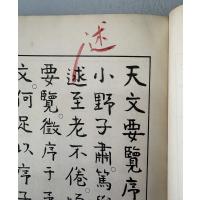 述
天文要覽序
小野子肅篤
述至老不倦。頃
要覽。徵序于
文。何足以序子